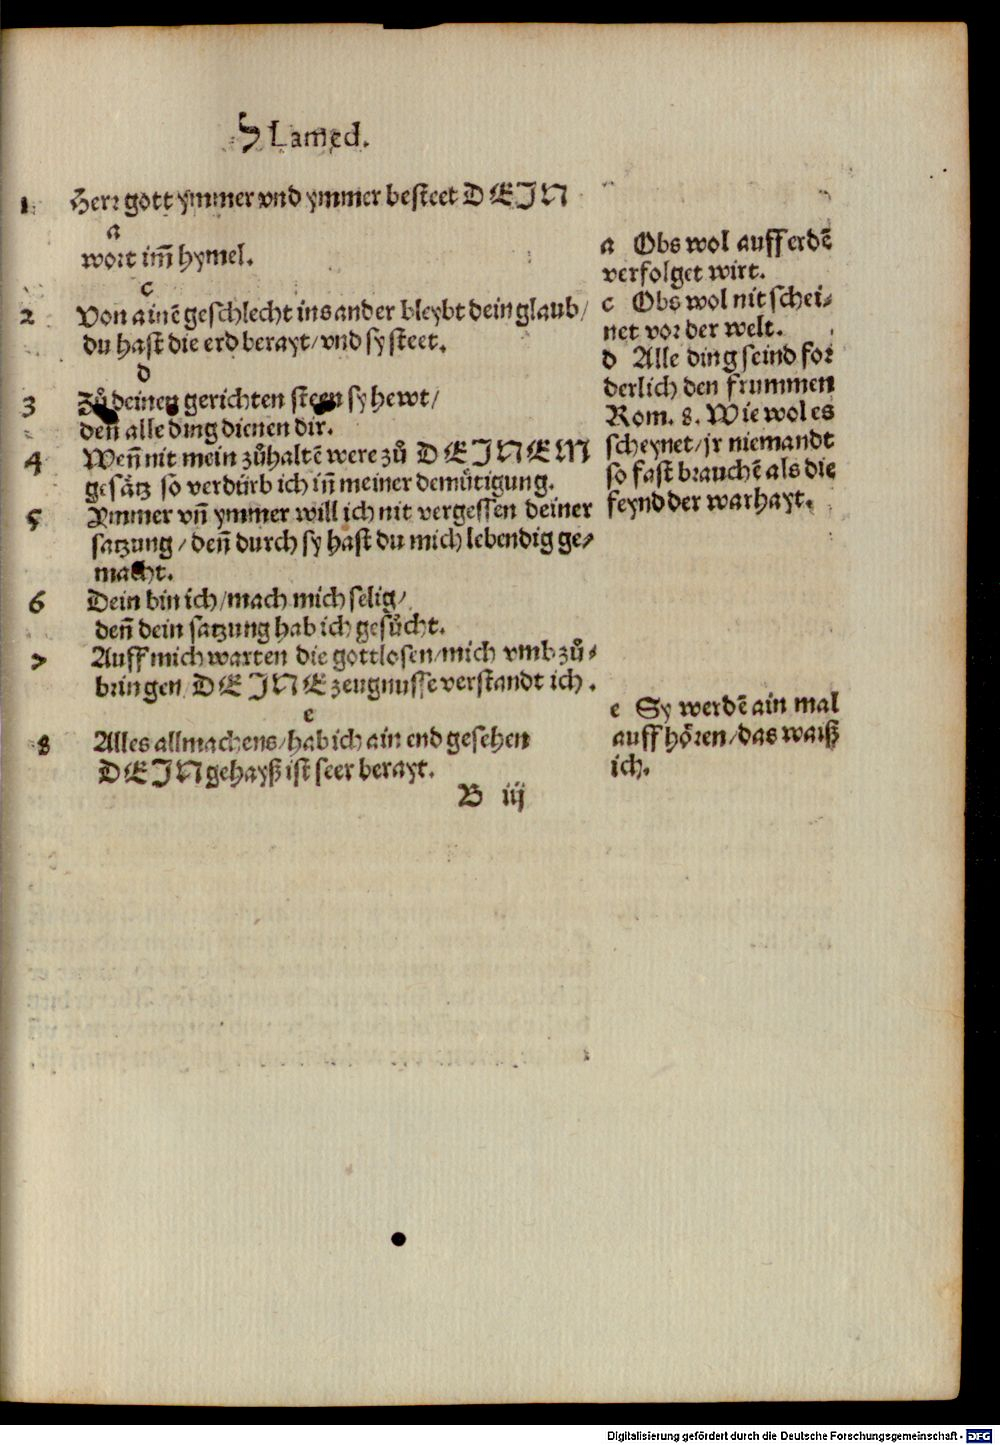 ל Lamed.
1 Herr gott ymmer vnd ymmer besteet DEIN
a
wort im̃ hymel.
c
2 Von ainē geschlecht ins ander bleybt dein glaub/
du hast die erd berayt/vnd sy steet.
d
3 Zů deinen gerichten steen sy hewt/
deñ alle ding dienen dir.
4 Weñ nit mein zůhaltē were zů DEINEM
gesätz so verdürb ich iñ meiner demütigung.
5 Ymmer vñ ymmer will ich nit vergessen deiner
satzung/deñ durch sy hast du mich lebendig ge-
macht.
6 Dein bin ich/mach mich selig/
deñ dein satzung hab ich gesůcht.
7 Auff mich warten die gottlosen/mich vmb zů-
bringen DEINE zeugnusse verstandt ich.
e
8 Alles allmachens/hab ich ain end gesehen
DEIN gehayß ist seer berayt.
B iij
a Obs wol auff erdē
verfolget wirt.
c Obs wol nit schei-
net vor der welt.
d Alle ding seind for
derlich den frummen
Rom. 8. Wie wol es
scheynet/jr niemandt
so fast brauchē als die
feynd der warhayt.
e Sy werdē ain mal
auff hören/das waiß
ich.
Digitalisierung gefördert durch die Deutsche Forschungsgemeinschaft - DFG